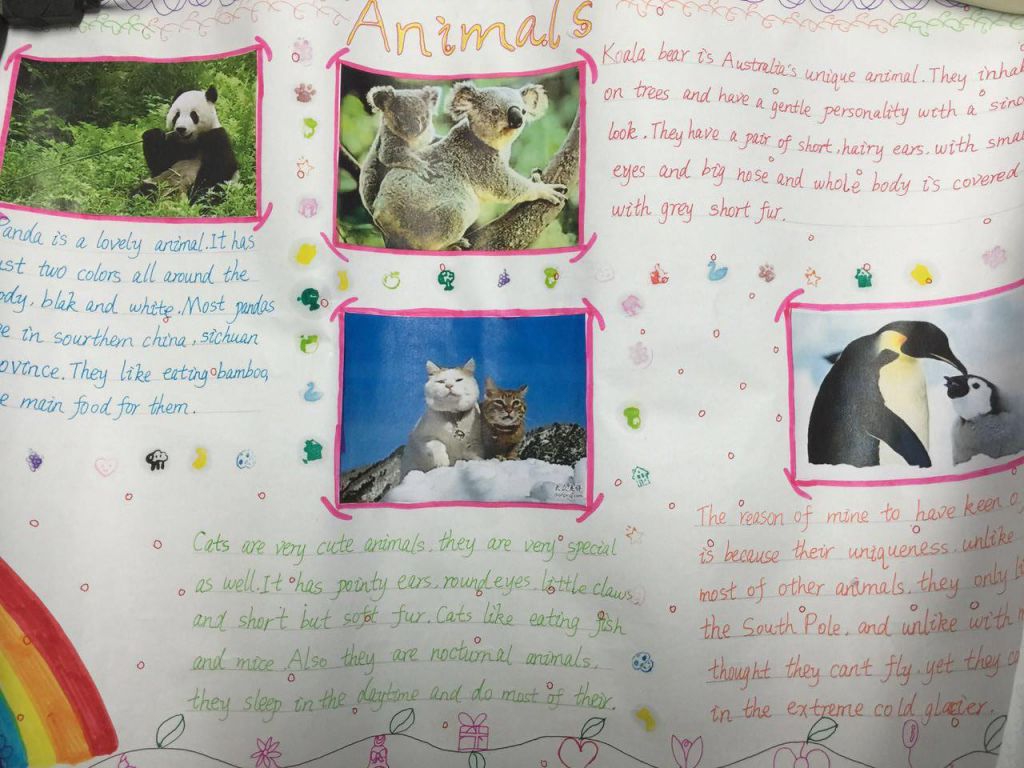 Animals
Koala bear is Australia's unique animal. They
on trees and have a gentle personality with a
look. They have a pair of short, hairy ears, with
eyes and big nose and whole body is covered
with grey short fur.
Panda is a lovely animal. It has
two colors all around the
blak and white. Most pandas
in sourthern china, sichuan
They like eating bamboo,
main food for them.
Cats are very cute animals, they are very special
as well. It has pointy ears, round eyes, little claws,
and short but soft fur. Cats like eating fish
and mice. Also they are nocturnal animals,
they sleep in the daytime and do most of their.
The reason of mine to have keen
is because their uniqueness, unlike
most of other animals, they only
the South Pole, and unlike with
thought they cant fly, yet they
in the extreme cold glacier.